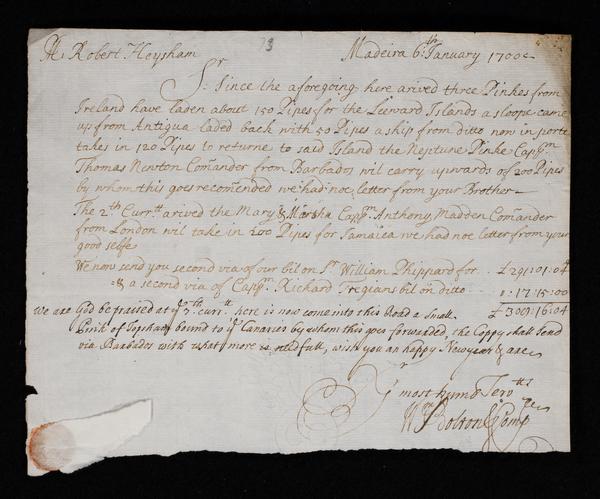 Mr. Robert Heysham 73 Madeira 6th January 1700
Sr. Since the aforegoing here arived three Pinkes from
Ireland have laden about 150 Pipes for the Leeward Islands a sloope came
up from Antigua laded back with 50 Pipes a ship from ditto now in porte
takes in 120 Pipes to returne to said Island the Neptune Pinke Capn
Thomas Newton Comander from Barbados wil carry upwards of 200 Pipes
by whom this goes recomended we had not letter from your Brother
The 2th Currtt arived the Mary & Martha Capn Anthony Madden Comander
from London wil take in 200 Pipes for Jamaica we had not letter from your
good selfe
We now send you 2d via of our bil on Sr. William Phippard for £ 291:01:04
& a second via of Capn Richard Tregians bil on ditto 17:15:00
£ 309:16:04
we are God be praised at ye 7th currtt here is now come into this Road a Small
Pink of Topsham bound to ye Canaries by whom this goes forwarded, the Coppy shall send
via Barbados with what more is needfull, wish you an happy New year & are
Yr most humb Servtts
Wm Bolton & Comp